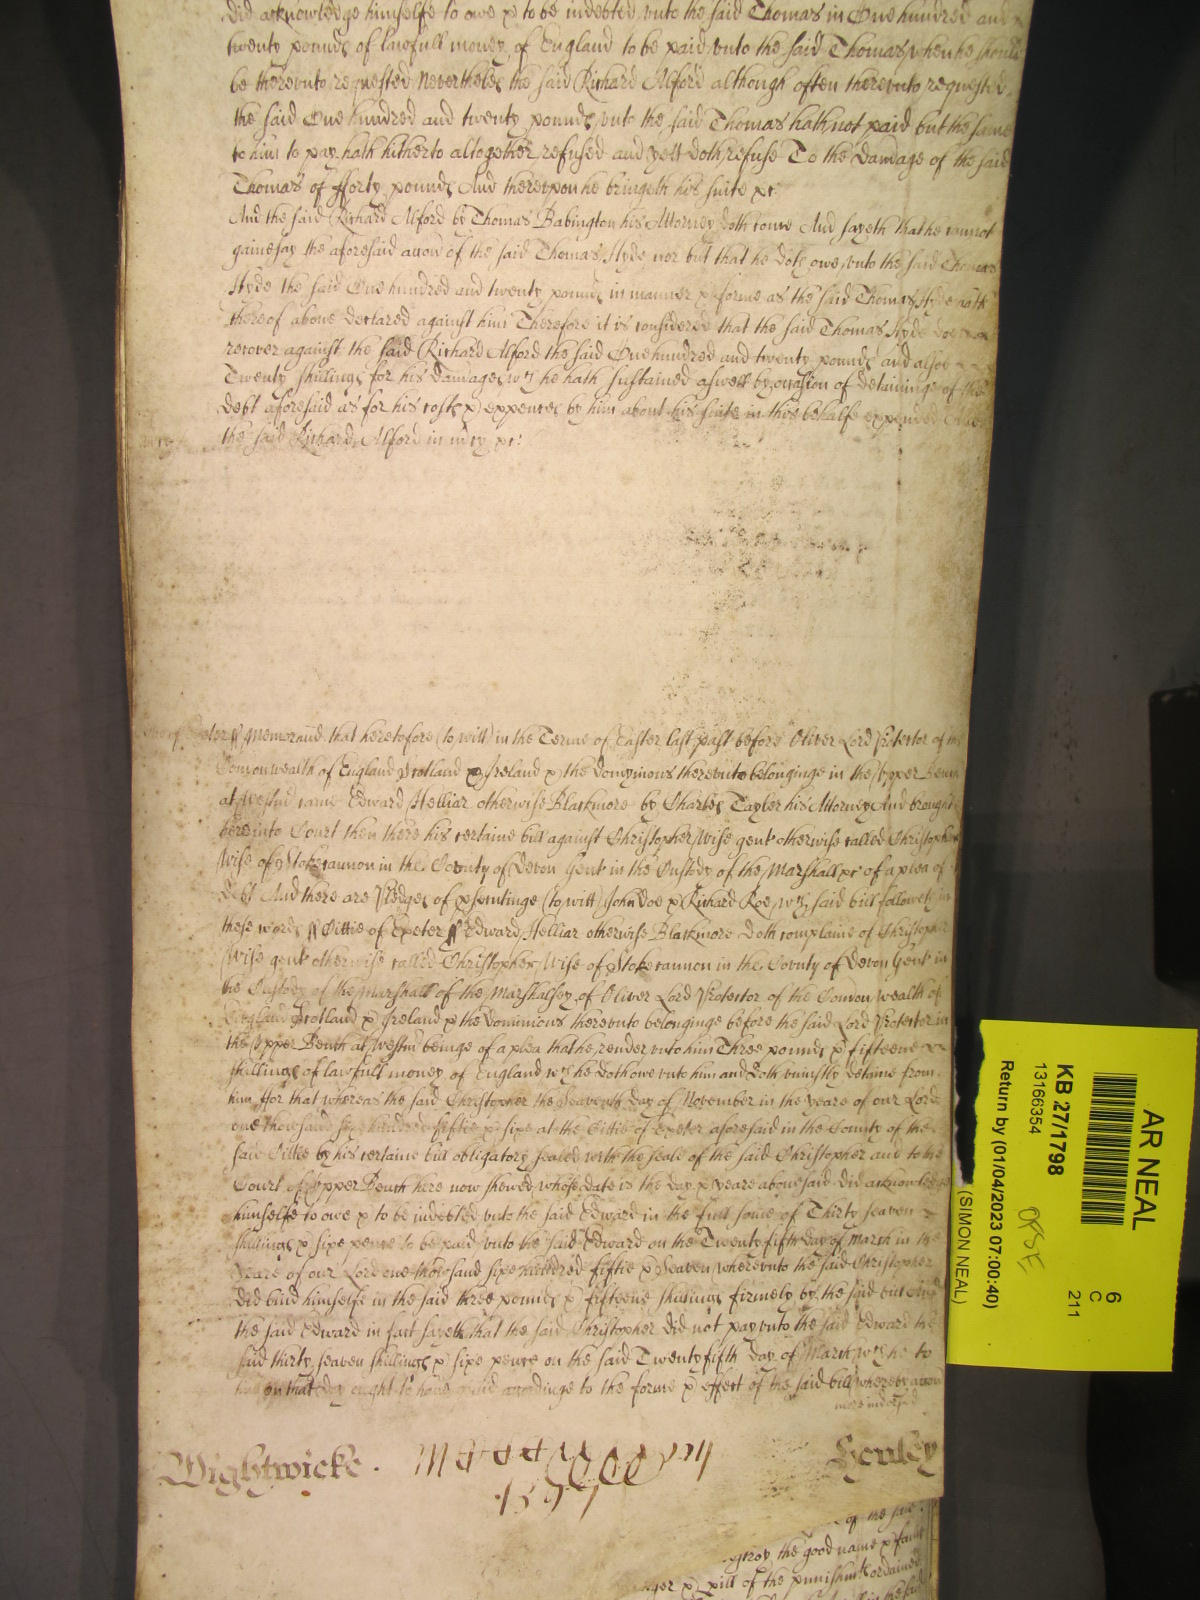 did acknowledge himselfe to owe & to be indebted vnto the said Thomas in One hundred and
twenty pounds of lawfull money of England to be paid vnto the said Thomas when he should
be therevnto requested Neverthelesse the said Richard Alford although often therevnto requested
the said One hundred and twenty pounds vnto the said Thomas hath not paid but the same
to him to pay hath hitherto altogether refused and yett doth refuse To the Damage of the said
Thomas of fforty pounds And therevpon he bringeth his suite &c
And the said Richard Alford by Thomas Babington his Attorney doth come And sayeth that he cannot
gainesay the aforesaid accon of the said Thomas Hyde nor but that he doth owe vnto the said Thomas
Hyde the said One hundred and twenty pounds in manner & forme as the said Thomas Hyde hath
thereof aboue declared against him Therefore it is considered that the said Thomas Hyde doe
recover against the said Richard Alford the said One hundred and twenty pounds and alsoe
Twenty shillings for his Damages wch he hath sustained aswell by occasion of detaininge of the
debt aforesaid as for his costs & expences by him about his suite in this behalfe expended
the said Richard Alford in mcy &c
Memorand that heretofore (to witt) in the Terme of Easter last past before Oliver Lord Protector of the
Comonwealth of England Scotland & Ireland & the dominions therevnto belonginge in the Vpper Bench
at Westm came Edward Helliar otherwise Blackmore by Charles Tayler his Attorney And brought
here into Court then there his certaine bill against Christopher Wise gent otherwise called Christopher
Wise of Stokecannon in the County of Devon Gent in the Custody of the Marshall &c of a plea of
debt And there are Pledges of prosecutinge (to witt) John Doe & Richard Roe wch said bill followeth in
these words ss Cittie of Exeter ss Edward Helliar otherwise Blackmore doth complaine of Christopher
Wise gent otherwise called Christopher Wise of Stokecannon in the County of Devon Gent in
the Custody of the Marshall of the Marshalsey of Oliver Lord Protector of the Comonwealth of
England Scotland & Ireland & the dominions therevnto belonginge before the said Lord Protector in
the Vpper Bench at Westm beinge of a plea that he render vnto him Three pounds & fifteene
shillings of lawfull money of England wch he doth owe vnto him and doth vniustly detaine from
him ffor that whereas the said Christopher the seaventh day of November in the yeare of our Lord
one thousand six hundred fiftie & sixe at the Cittie of Exeter aforesaid in the County of the
same Cittie by his certaine bill obligatory sealed with the seale of the said Christopher and to the
Court of Vpper Bench here now shewed whose date is the day & yeare abouesaid did acknowledge
himselfe to owe & to be indebted vnto the said Edward in the full some of Thirty seaven
shillings & sixe pence to be paid vnto the said Edward on the Twenty fifth day of March in the
Yeare of our Lord one thousand sixe hundred fiftie & Seaven wherevnto the said Christopher
did bind himselfe in the said three pounds & fifteene shillings firmely by the said
the said Edward in fact sayeth that the said Christopher did not pay vnto the said Edward the
said thirty seaven shillings & sixe pence on the said Twenty fifth day of March wch he to
him on that day ought to have paid accordinge to the forme & effect of the said bill whereby accon
more indorsed
Wightwicke
1597
Henley
of the said
the good name & fame
& pill of the punishmt ordained
AR NEAL
KB 27/1798
13166354
Return by (01/04/2023 07:00:40)
(SIMON NEAL)
6
C
211